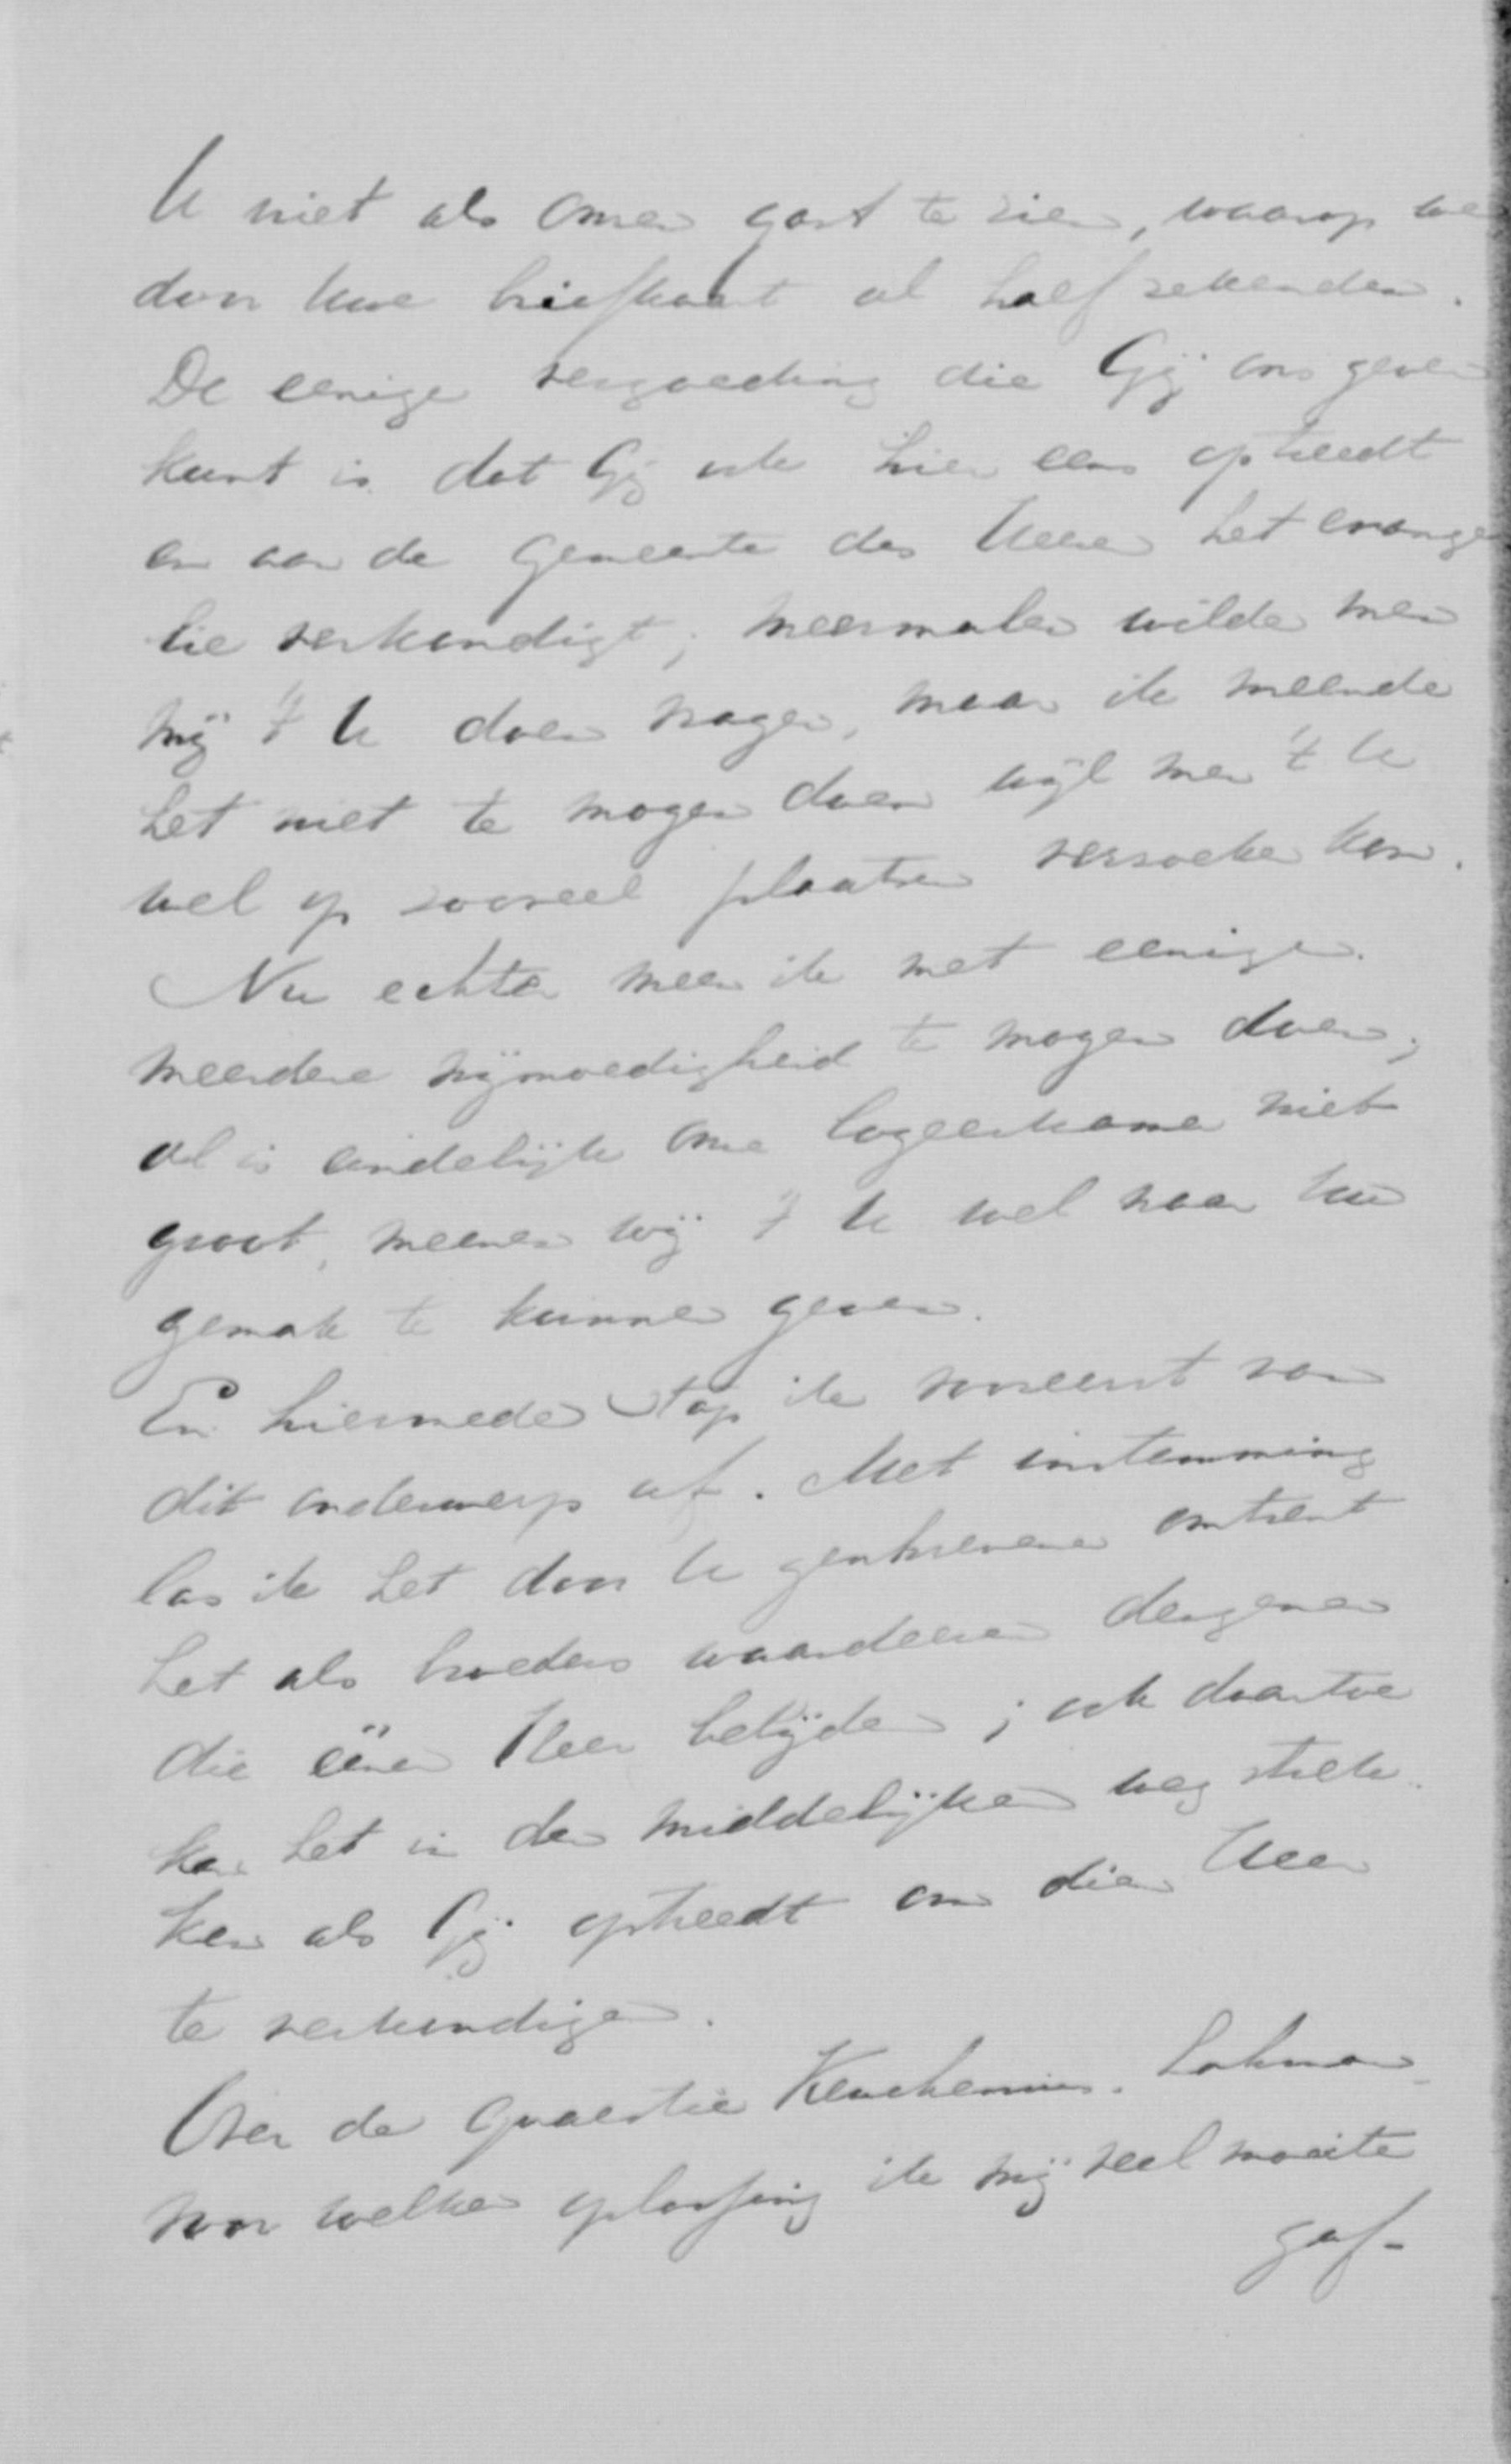 U niet als onzen gast te zien, waarop we
door uwe briefkaart al half rekenden.
De eenige vergoeding die Gij ons geven
kunt is dat Gij ook hier eens optreedt
en aan de Gemeente des Heeren het evange
lie verkondigt; meermalen wilde men
mij 't U doen vragen, maar ik meende
het niet te mogen doen wijl men 't U
wel op zooveel plaatsen verzoeken kon.
Nu echter meen ik met eenige
meerdere vrijmoedigheid te mogen doen;
al is eindelijk onze logeerkamer niet
groot, meenen wij 't U wel naar Uw
gemak te kunnen geven.
En hiermede stap ik vooreerst van
dit onderwerp af. Met instemming
las ik het door U geschrevene omtrent
het als broeders waardeeren dergenen
die éénen Heer belijden; ook daartoe
kan het in den middelijken weg strek
ken als Gij optreedt om dien Heer
te verkondigen.
Over de quaestie Keuchenius-Lohman
voor welker oplossing ik mij veel moeite
gaf-